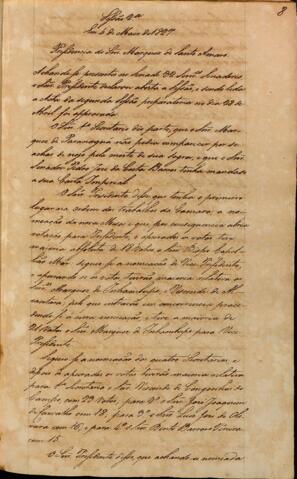 8
Sessão 2ª
Em 4 de Maio de 1827
Presidencia do Snr. Marquez de Santo Amaro
Achando-se presentes no Senado 32 Snrs. Senadores
o Snr. Presidente declarou aberta a Sessão, e sendo lida
a Acta da segunda Sessão preparatoria no dia
Abril foi approvada
O Snr. 1º Secretario deo parte, que o Snr. Mar-
quez de Paranaguá não podia comparecer por se
achar de nojo pela morte de sua Sogra, e que o Snr.
Senador Pedro José da Costa Barros tinha mandado
a sua Carta Imperial
O Snr. Presidente disse que tinha o primeiro
lugar na ordem dos trabalhos da Camara, a no-
meação da nova Mesa; e que por conseguinte abria
votação para Presidente, e apurados os votos teve
maioria absoluta de 18 Votos o Snr. Bispo Capel-
lão Mór. Seguio-se a nomeação de Vice Presidente,
e apurando-se os votos tiverão maioria relativa os
Snrs. Marquez de Inhambupe, e Visconde de Al-
cantara; pelo que entrarão em concurrencia proce-
dendo-se a uma nomeação, e teve a maioria de
21 Votos o Snr. Marquez de Inhambupe para Vice
Presidente
Seguio-se a nomeação dos quatro Secretarios, e
depois de apurados os votos tiverão maioria relativa
para 1º Secretario o Snr. Visconde de Congonhas do
Campo, com 23 Votos, para 2º o Snr. José Joaquim
de Carvalho com 18, para 3º o Snr. Luiz José de Oli-
veira com 16, e para 4º o Snr. Bento Barroso Pereira
com 15.
O Snr. Presidente disse, que achando-se nomeada